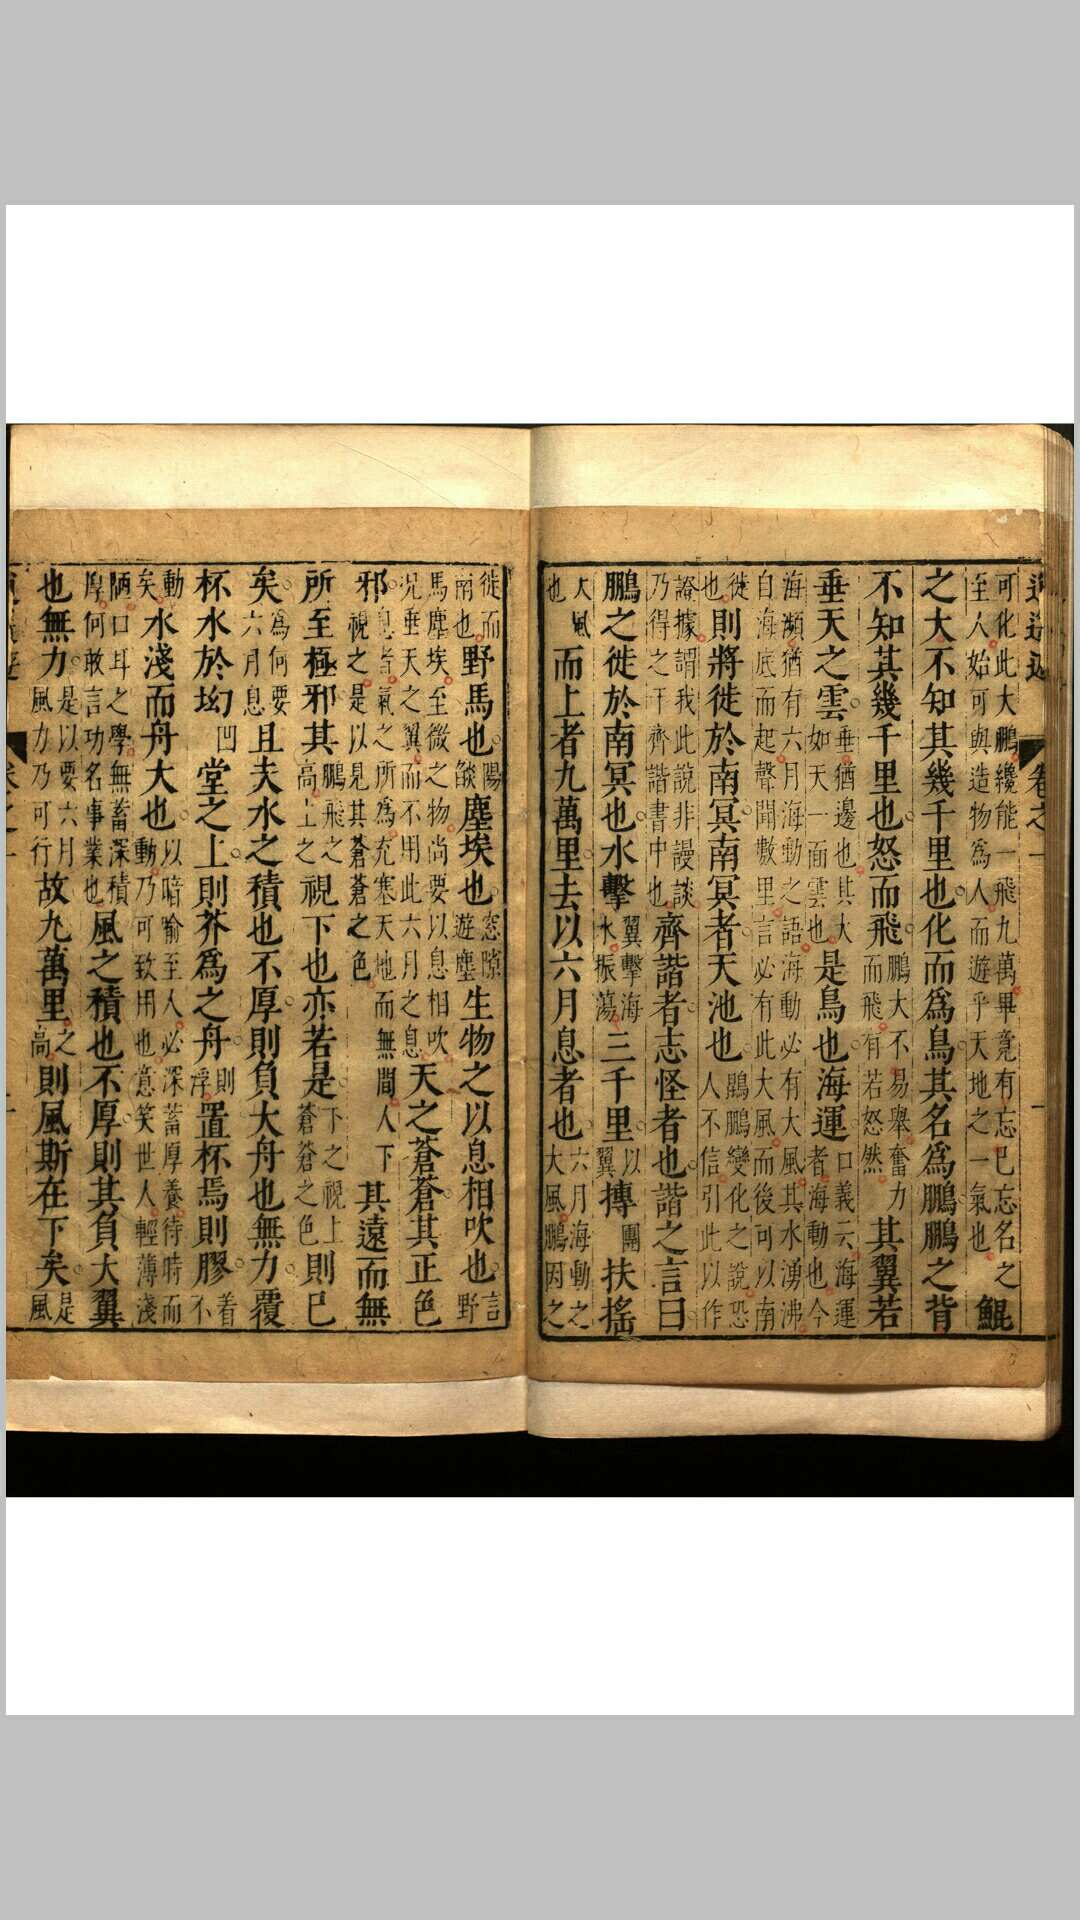 逍遙遊 卷之一 一
可化此大鵬纔能一飛九萬畢竟有忘已忘名之
至人始可與造物為人而遊乎天地之一氣也 鯤
之大不知其幾千里也化而為鳥其名為鵬鵬之背
不知其幾千里也怒而飛鵬大不易舉奮力
而飛有若怒然其翼若
垂天之雲垂猶邊也其大
如天一面雲也是鳥也海運口義云海運
者海動也今
海瀕猶有六月海動之語海動必有大風其水湧沸
自海底而起聲聞數里言必有此大風而後可以南
徙
也則將徙於南冥南冥者天池也鵾鵬變化之說恐
人不信引此以作
證據謂我此說非謾談
乃得之于齊諧書中也齊諧者志怪者也諧之言曰
鵬之徙於南冥也水擊翼擊海
水振蕩三千里以
翼摶團扶搖
大風
也而上者九萬里去以六月息者也六月海動之
大風鵬因之
徙而
南也野馬也陽
燄塵埃也窓隙
遊塵生物之以息相吹也言
野
馬塵埃至微之物尚要以息相吹
况垂天之翼而不用此六月之息天之蒼蒼其正色
邪息者氣之所為充塞天地而無間人下
視之是以見其蒼蒼之色其遠而無
所至極邪其鵬飛之
高上之視下也亦若是下之視上
蒼蒼之色則已
矣為何要
六月息且夫水之積也不厚則負大舟也無力覆
杯水於坳凹堂之上則芥為之舟則
浮置杯焉則膠着
不
動
矣水淺而舟大也以暗喻至人必深蓄厚養待時而
動乃可致用也意笑世人輕薄淺
陋口耳之學無蓄深積
厚何敢言功名事業也風之積也不厚則其負大翼
也無力是以要六月
風力乃可行故九萬里之
高則風斯在下矣是
風